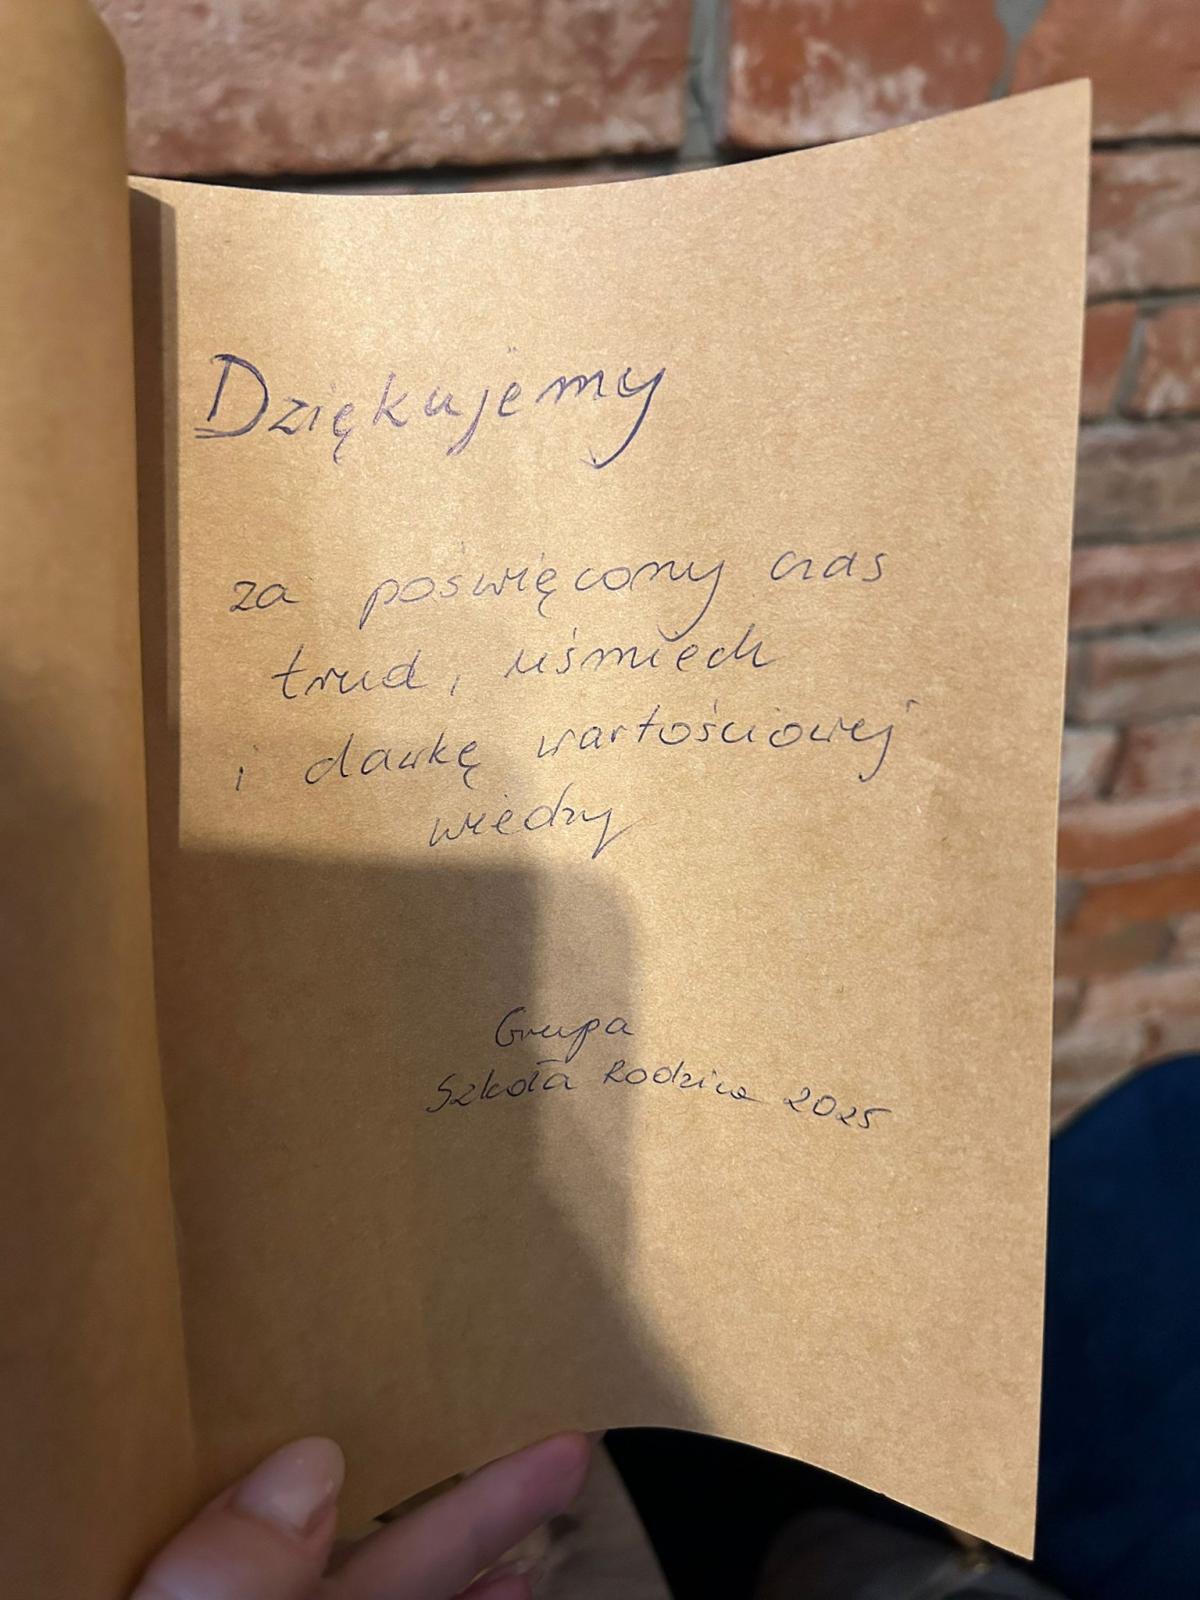 Dziękujemy
za poświęcony czas
trud, uśmiech
i dawkę wartościowej
wiedzy
Grupa
Szkoła Rodzica 2025